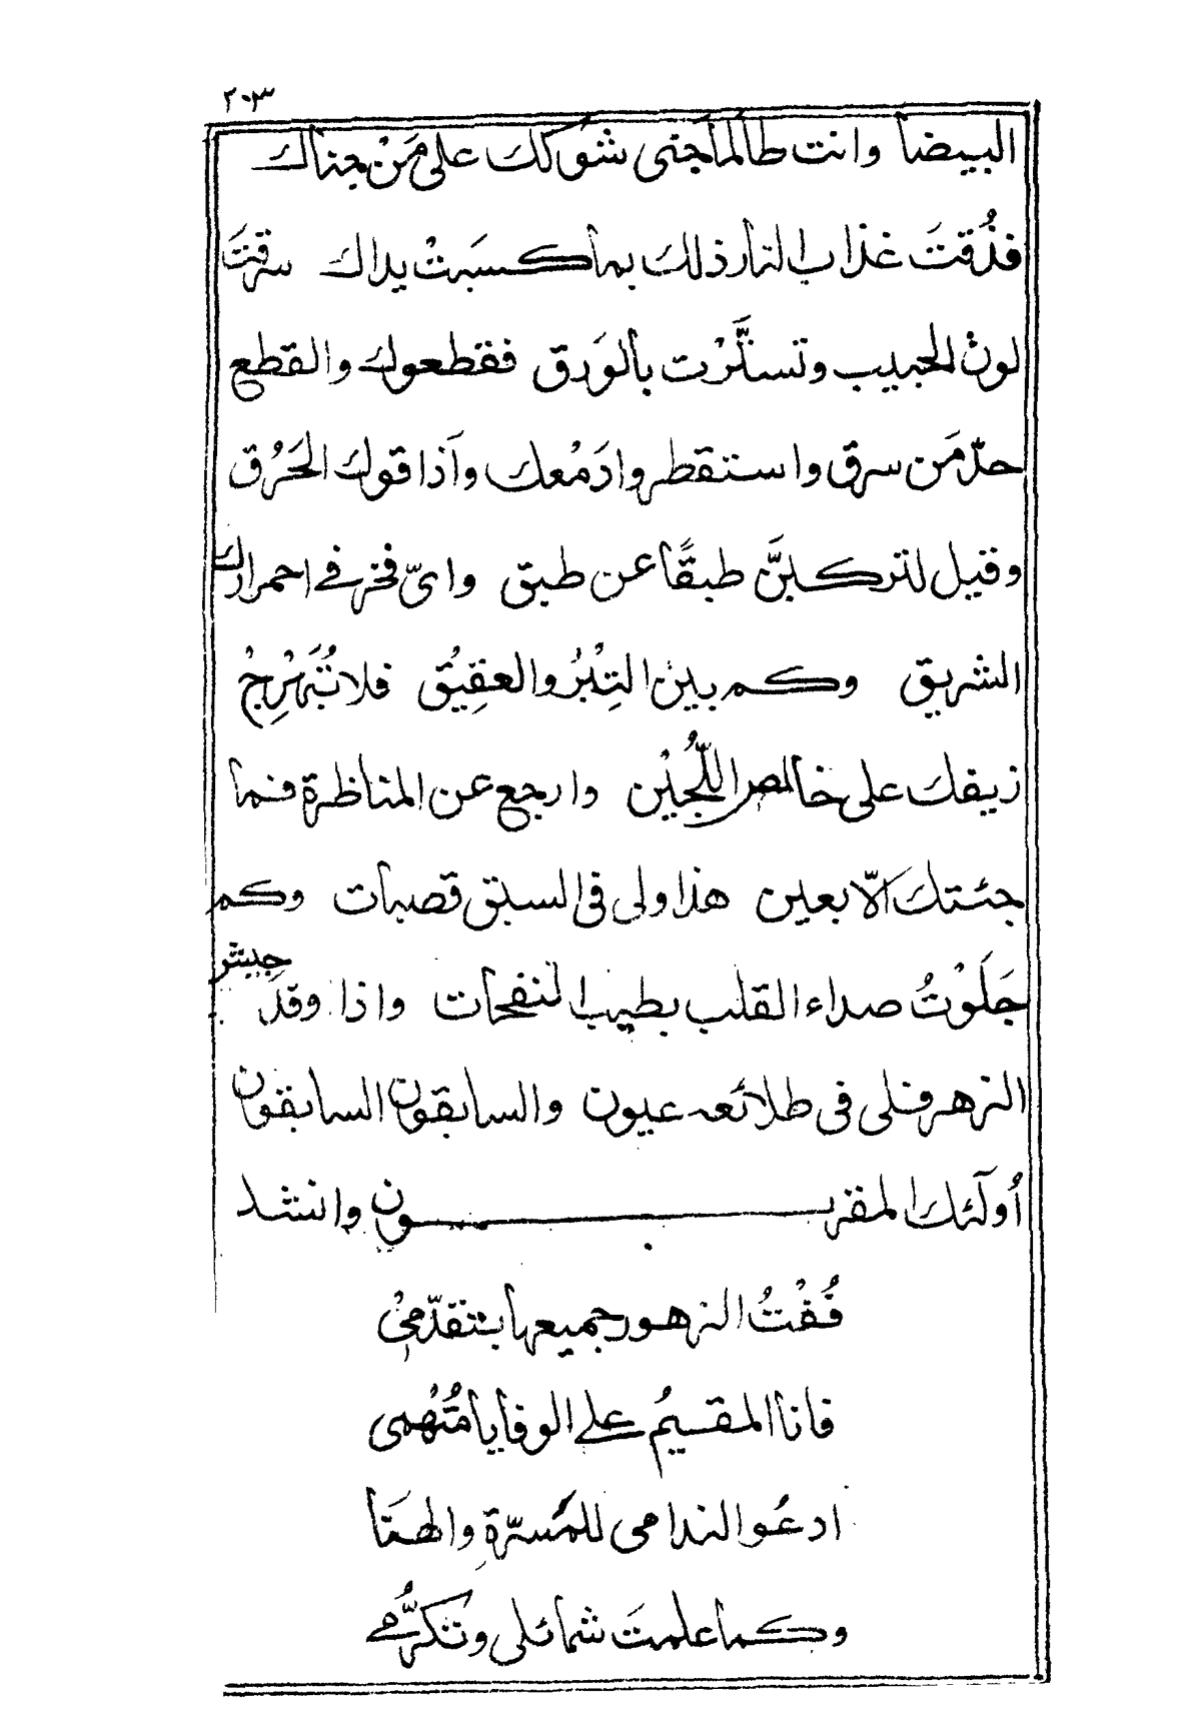 ٢٠٣
البيضا وانت طالما جنى شوكك على مَنْ جناك
فذُقتَ عذاب النار ذلك بما كسبَتْ يداك سرقتَ
لون الحبيب وتستَّرْت بالوَرق فقطعوك والقطع
حدّ مَن سرق واستقطروا دَمْعك وآذاقوك الحَرُق
وقيل لتركبنَّ طبقًا عن طبق واىّ فخر فى احمرارك
الشريق وكم بين التِبْرُ والعقِيُق فلا تُبَهْرِجْ
زيفك على خالص اللُّجَيْن وارجع عن المناظرة فما
جئتك الّا بعين هذا ولى فى السبق قصبات وكم
جَلَوْتُ صداء القلب بطيب النفحات واذا وقدَ جيش
الزهر فلى فى طلائعه عيون والسابقون السابقون
أولَئك المقربون وانشد
فُقْتُ الزهور جميعها بتقدّمىْ
فانا المقسيمُ على الوفا يا مُتْهمى
ادعُو الندامى للمَسرّة والهَنا
وكما علمتَ شمائلى وتكرُّمى